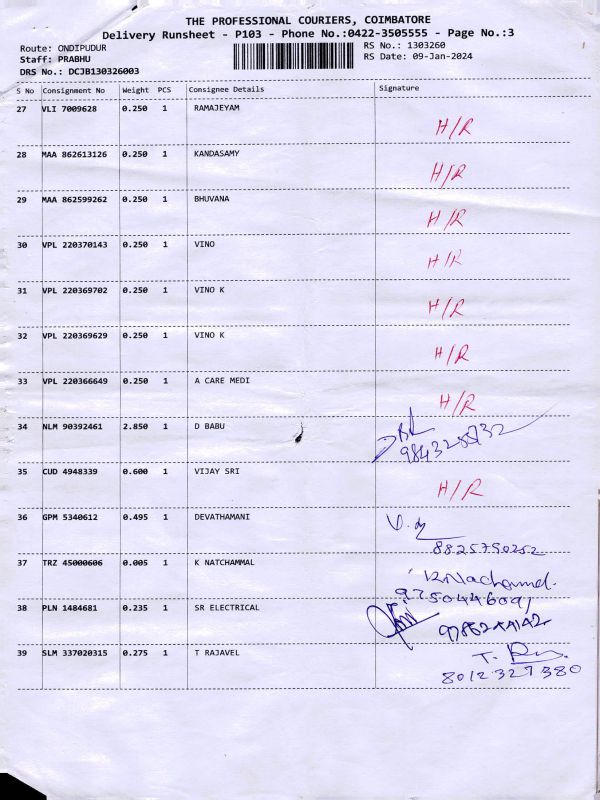 THE PROFESSIONAL COURIERS, COIMBATORE
Delivery Runsheet - P103 - Phone No.:0422-3505555 - Page No.:3
Route: ONDIPUDUR RS No.: 1303260
Staff: PRABHU RS Date: 09-Jan-2024
DRS No.: DCJB130326003
S No Consignment No Weight PCS Consignee Details Signature
27 VLI 7009628 0.250 1 RAMAJEYAM
H/R
28 MAA 862613126 0.250 1 KANDASAMY
H/R
29 MAA 862599262 0.250 1 BHUVANA
H/R
30 VPL 220370143 0.250 1 VINO
H/R
31 VPL 220369702 0.250 1 VINO K
H/R
32 VPL 220369629 0.250 1 VINO K
H/R
33 VPL 220366649 0.250 1 A CARE MEDI
H/R
34 NLM 90392461 2.850 1 D BABU
35 CUD 4948339 0.600 1 VIJAY SRI
H/R
36 GPM 5340612 0.495 1 DEVATHAMANI
8825790252
37 TRZ 45000606 0.005 1 K NATCHAMMAL
9750446091
38 PLN 1484681 0.235 1 SR ELECTRICAL
39 SLM 337020315 0.275 1 T RAJAVEL
8012327380